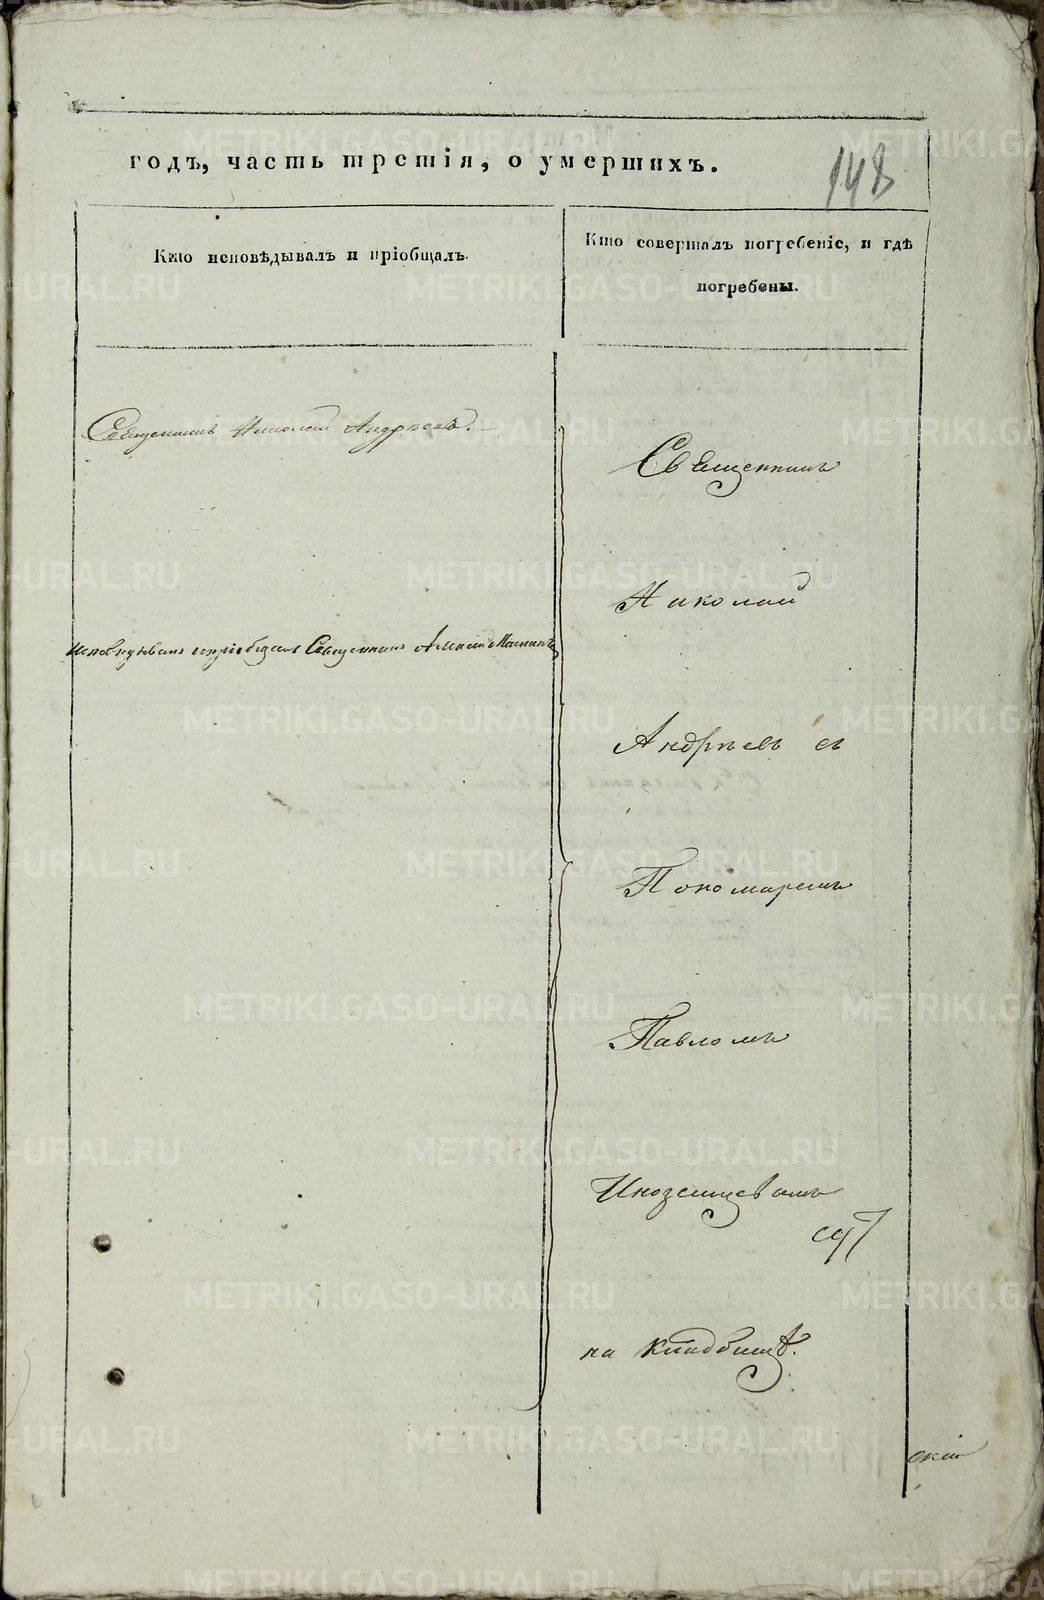 годъ, часть третія, о умершихъ.
148
Кто исповѣдывалъ и пріобщалъ.
Кто совершалъ погребеніе, и гдѣ
погребены.
Священникъ Николай Андреевъ.
Священникъ
Николай
Исповѣдывалъ и пріобщалъ Священникъ
Андреевъ съ
Пономаремъ
Павломъ
Иноземцевымъ
на кладбищѣ.
скій
METRIKI.GASO-URAL.RU